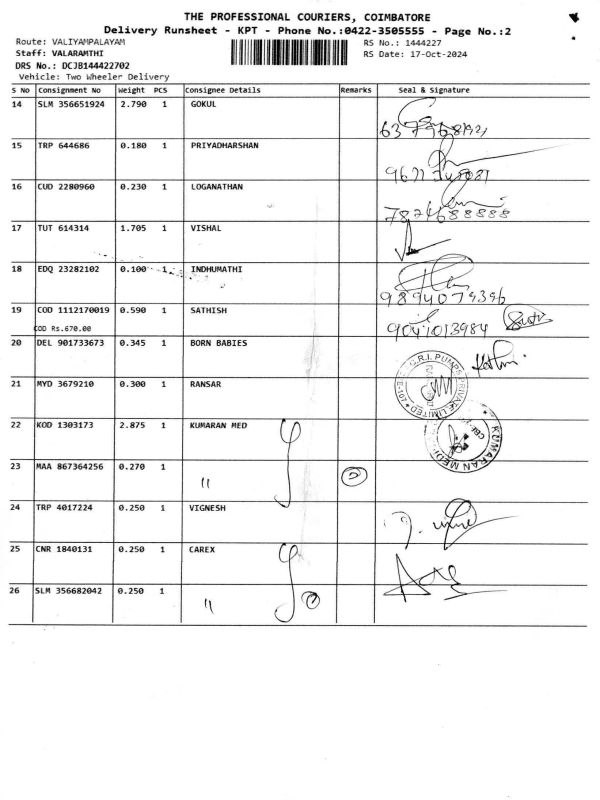 THE PROFESSIONAL COURIERS, COIMBATORE
Delivery Runsheet - KPT - Phone No.:0422-3505555 - Page No.:2
Route: VALIYAMPALAYAM
RS No.: 1444227
Staff: VALARAMTHI
RS Date: 17-Oct-2024
DRS No.: DCJB144422702
Vehicle: Two Wheeler Delivery
S No Consignment No Weight PCS Consignee Details Remarks Seal & Signature
14 SLM 356651924 2.790 1 GOKUL
15 TRP 644686 0.180 1 PRIYADHARSHAN
16 CUD 2280960 0.230 1 LOGANATHAN
7824688888
17 TUT 614314 1.705 1 VISHAL
18 EDQ 23282102 0.100 1 INDHUMATHI
9894079396
19 COD 1112170019 0.590 1 SATHISH
COD Rs.670.00
9041013984
20 DEL 901733673 0.345 1 BORN BABIES
21 MYD 3679210 0.300 1 RANSAR
G.R.I. PUMPS PRIVATE LIMITED
22 KOD 1303173 2.875 1 KUMARAN MED
KUMARAN MEDI
CBE
23 MAA 867364256 0.270 1 "
2
24 TRP 4017224 0.250 1 VIGNESH
25 CNR 1840131 0.250 1 CAREX
26 SLM 356682042 0.250 1 " 2